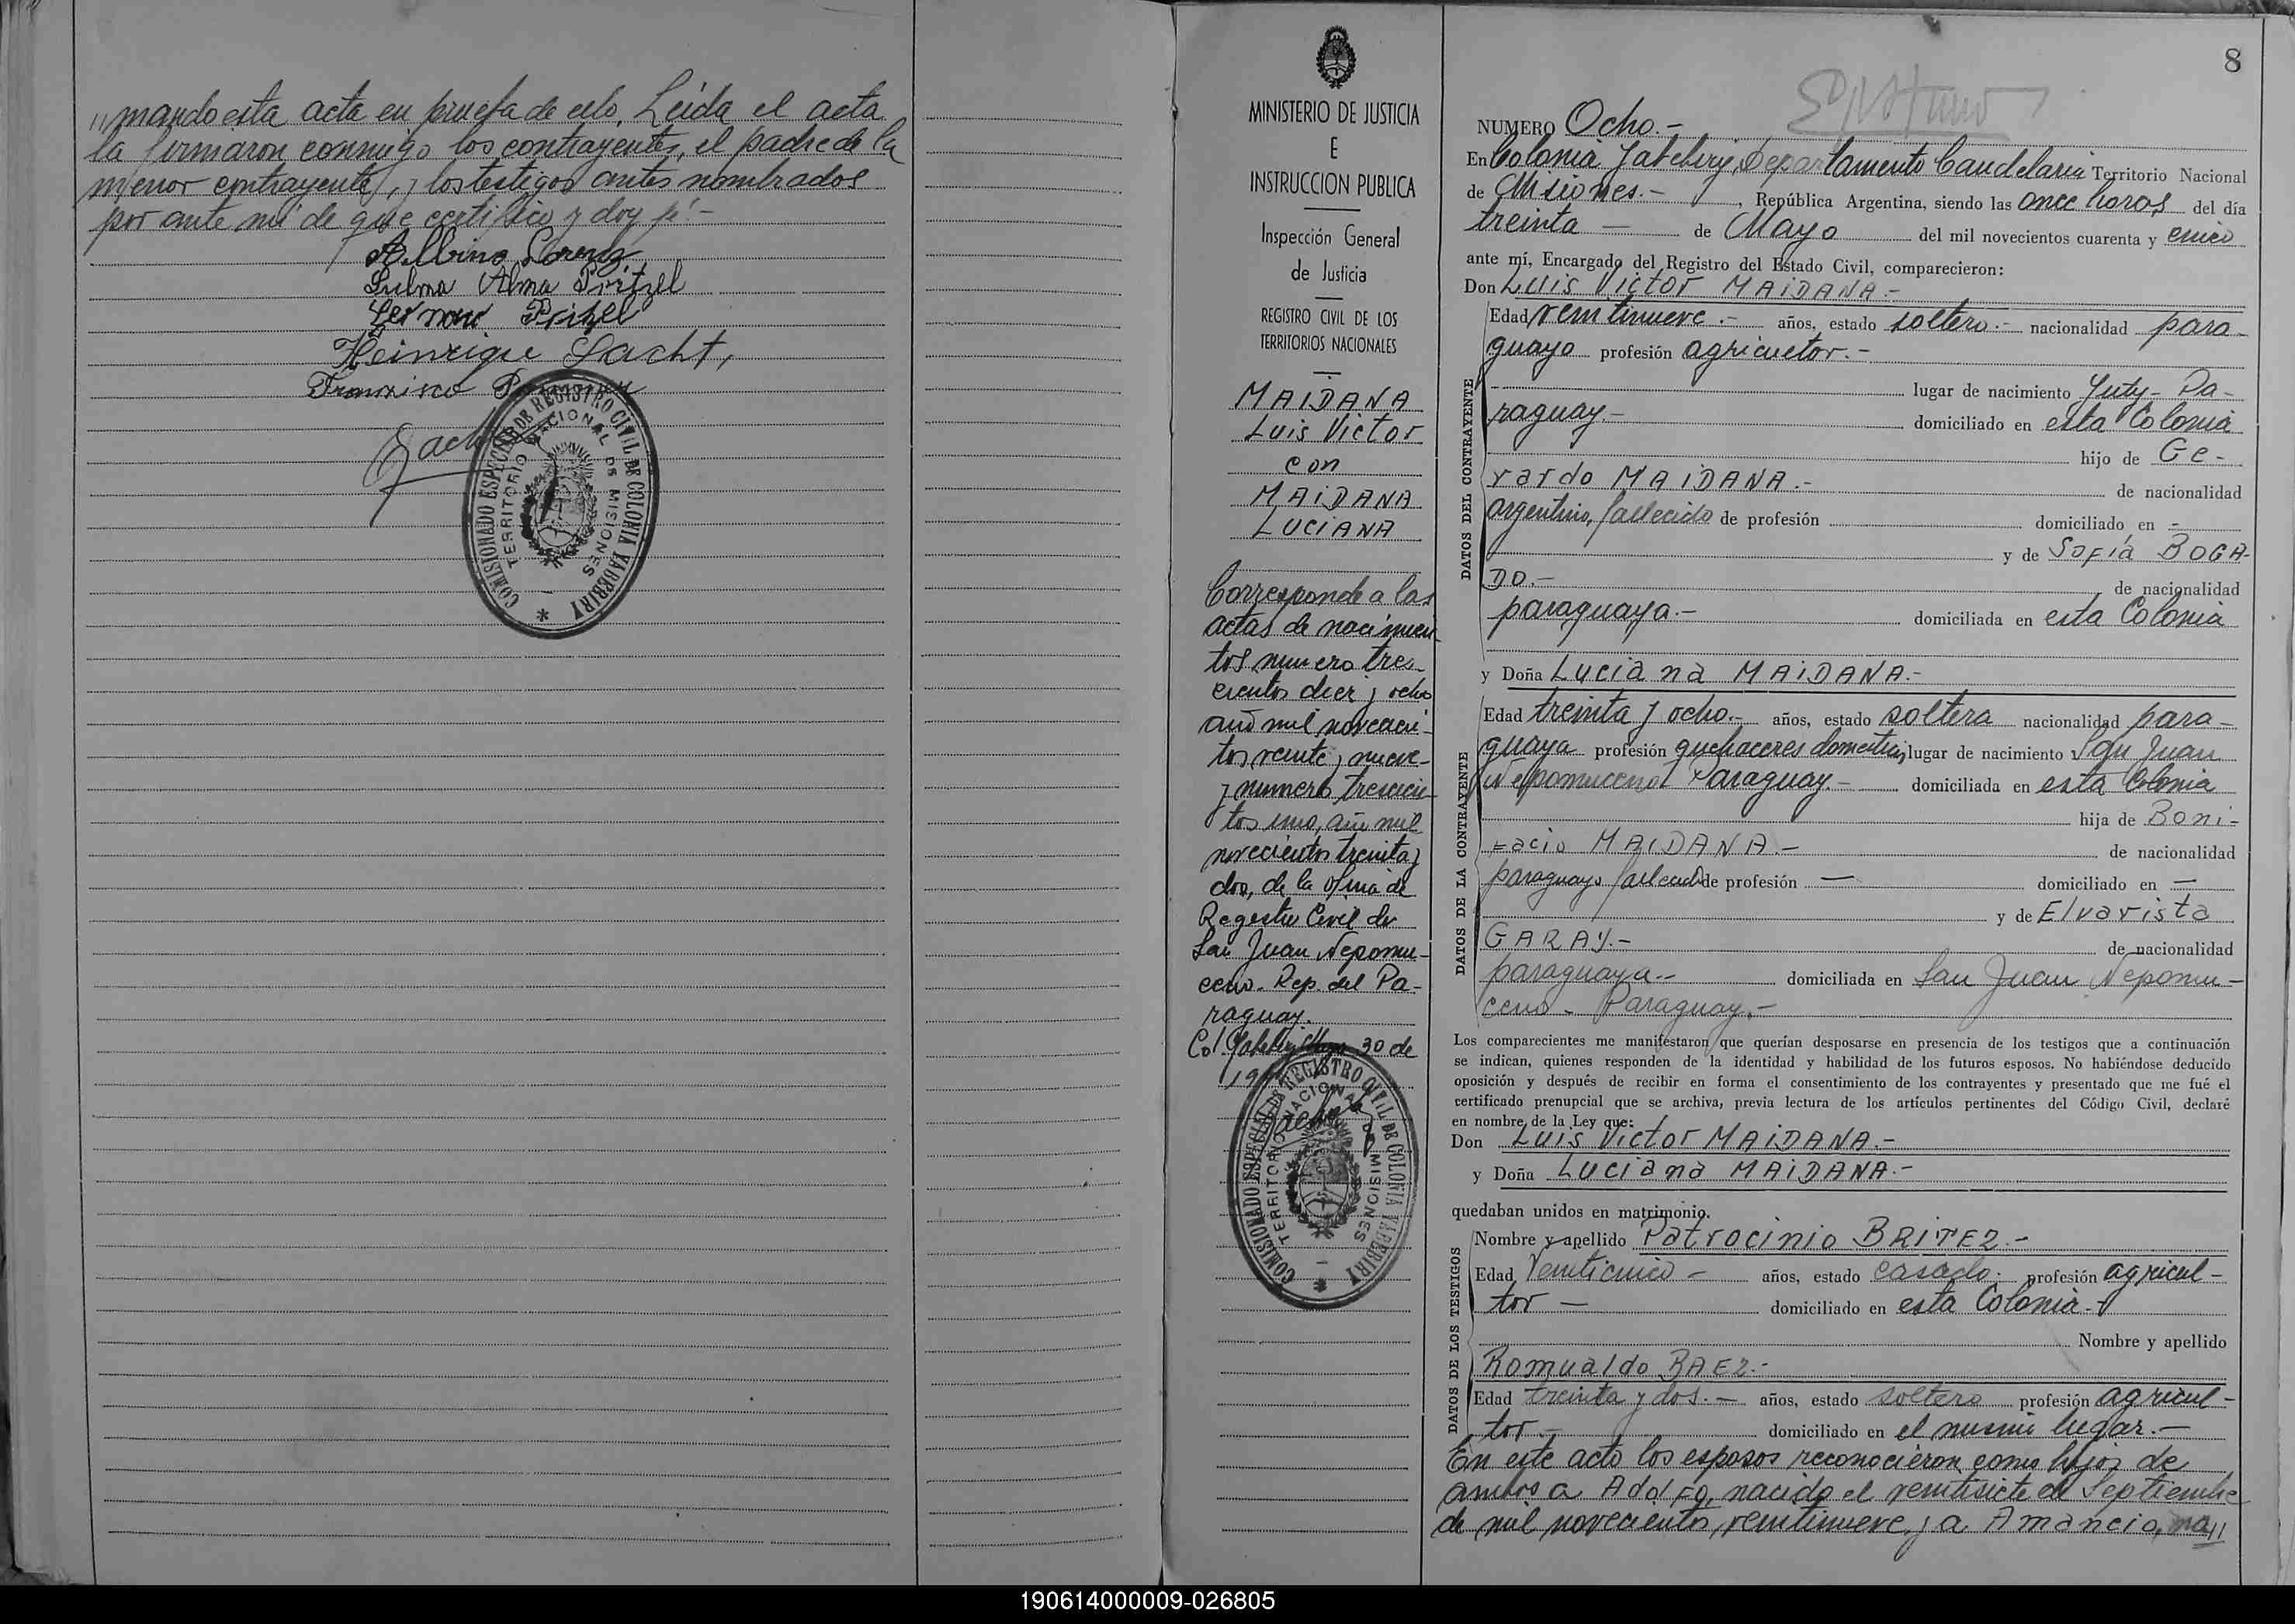 "mando esta acta en prueba de ello. Leida el acta
la firmaron conmigo los contrayentes, el padre de la
menor contrayente, y los testigos antes nombrados
por ante mi de que certifico y doy fé.-
Albino Lorenz
Selma Alma Pritzel
Pritzel
Heinrique Sacht,
Francisco
COMISIONADO ESPECIAL DE REGISTRO CIVIL DE COLONIA YABEBIRI
TERRITORIO NACIONAL DE MISIONES
MINISTERIO DE JUSTICIA
E
INSTRUCCION PUBLICA
Inspección General
de Justicia
REGISTRO CIVIL DE LOS
TERRITORIOS NACIONALES
MAIDANA
Luis Victor
con
MAIDANA
LUCIANA
Corresponde a las
actas de nacimien-
tos numero tres-
cientos diez y ocho
año mil novecien-
tos veinte y nueve-
y numero trescien-
tos uno, año mil
novecientos treinta y
dos, de la ofina de
Registro Civil de
San Juan Nepomu-
ceno. Rep. del Pa-
raguay.
Col. Yabebiry Mayo 30 de
19
COMISIONADO ESPECIAL DE REGISTRO CIVIL DE COLONIA YABEBIRI
TERRITORIO NACIONAL DE MISIONES
8
NUMERO Ocho.-
En Colonia Yabebiry, Departamento Candelaria Territorio Nacional
de Misiones.- , República Argentina, siendo las once horas del día
treinta — de Mayo del mil novecientos cuarenta y cinco
ante mí, Encargado del Registro del Estado Civil, comparecieron:
Don Luis Victor MAIDANA.-
DATOS DEL CONTRAYENTE
Edad veintinueve.- años, estado soltero.- nacionalidad para-
guayo profesión agricultor.-
lugar de nacimiento Yuty- Pa-
raguay.- domiciliado en esta Colonia
hijo de Ge-
rardo MAIDANA.- de nacionalidad
argentino, fallecido de profesión domiciliado en -
y de Sofía BOGA-
DO.- de nacionalidad
paraguaya.- domiciliada en esta Colonia
y Doña Luciana MAIDANA.-
DATOS DE LA CONTRAYENTE
Edad treinta y ocho.- años, estado soltera nacionalidad para-
guaya profesión quehaceres domesticos, lugar de nacimiento San Juan
Nepomuceno Paraguay.- domiciliada en esta Colonia
hija de Boni-
facio MAIDANA.- de nacionalidad
paraguayo fallecido de profesión — domiciliado en —
y de Elvarista
GARAY.- de nacionalidad
paraguaya.- domiciliada en San Juan Nepomu-
ceno - Paraguay.-
Los comparecientes me manifestaron que querían desposarse en presencia de los testigos que a continuación
se indican, quienes responden de la identidad y habilidad de los futuros esposos. No habiéndose deducido
oposición y después de recibir en forma el consentimiento de los contrayentes y presentado que me fué el
certificado prenupcial que se archiva, previa lectura de los artículos pertinentes del Código Civil, declaré
en nombre de la Ley que:
Don Luis Victor MAIDANA.-
y Doña Luciana MAIDANA.-
quedaban unidos en matrimonio.
DATOS DE LOS TESTIGOS
Nombre y apellido Patrocinio BRITEZ.-
Edad Veinticinco - años, estado casado. profesión agricul-
tor — domiciliado en esta Colonia.-
Nombre y apellido
Romualdo BAEZ.-
Edad treinta y dos.- años, estado soltero profesión agricul-
tor.- domiciliado en el mismo lugar.-
En este acto los esposos reconocieron como hijos de
ambos a Adolfo, nacido el veintisiete de Septiembre
de mil novecientos veintinueve y a Amancio, na"
190614000009-026805